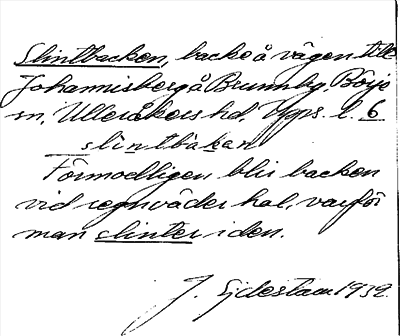 Slintbacken, backe å vägen till
Johannisberg å Brunnby, Börje
sn, Ulleråkers hd, Upps. l. 6
slintbakan
Förmodligen blir backen
vid regnväder hal, varför
man slinter i den.
J. Ejdestam 1939